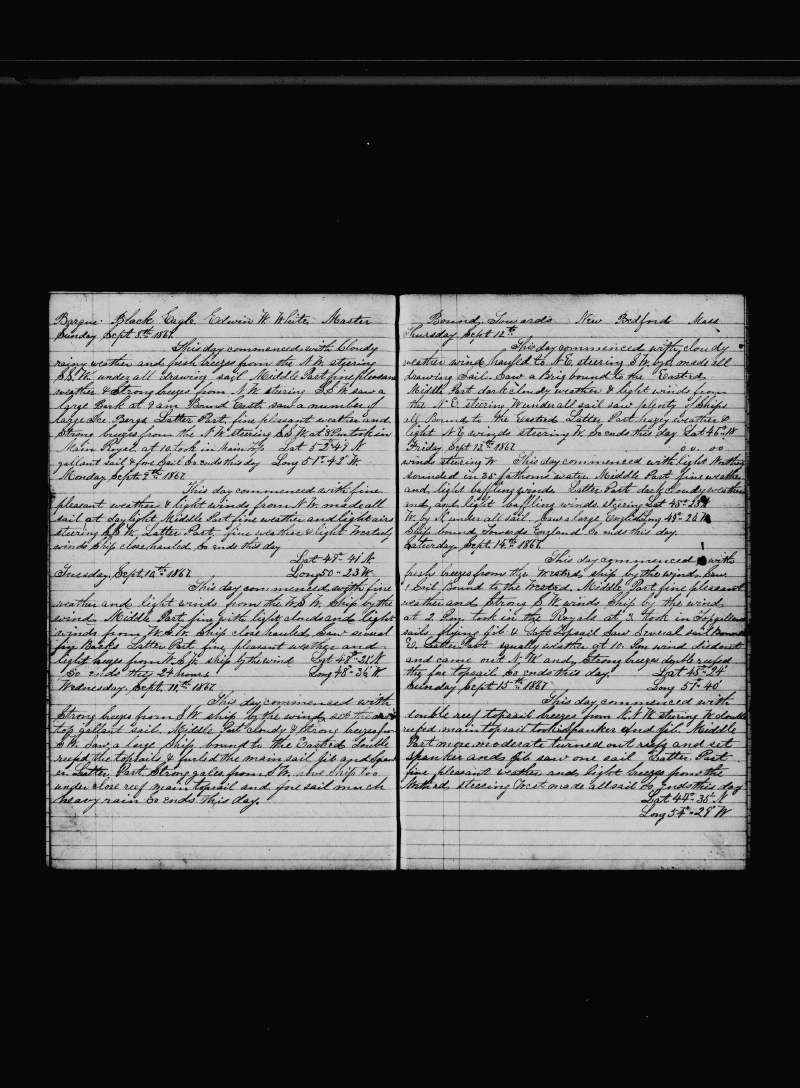 Barque Black Eagle Edwin W. White Master
Sunday Sept 8th 1867
This day commenced with Cloudy
rainy weather and fresh breezes from the N.W. steering
S.S.W. under all drawing sail Middle Part fine pleasant
weather & Strong breezes from N.W. stering S.S.W. saw a
large Bark at 9 am Bound East. saw a number of
large Ice Bergs Latter Part, fine pleasant weather and
Strong breezes from the N.W. Steering S.S.W. at 8 Pm took in
Main Royal, at 10 took in main top Lat 52-49 N
gallant sail & fore Sail So ends this day Long 51-42 W
Monday Sept 9th 1867
This day commenced with fine
pleasant weather & light winds from N.W. made all
sail at daylight Middle Part fine weather and light airs
steering S.S.W. Latter Part, fine weather & light Westerly
winds Ship close hauled So ends this day
Lat 49-41 N
Tuesday, Sept, 10th 1867 Long 50-23 W
This day commenced with fine
weather and light winds from the W.S.W. Ship by the
wind Middle Part fine with light clouds and light
winds from W.S.W. Ship close hauled Saw several
fin Backs Latter Part, fine pleasant weather and
light breezes from W.S.W. ship by the wind Lat 48-21 N
So ends this 24 hours Long 48-36 W
Wednesday, Sept, 11th 1867
This day commenced with
Strong breezes from S.W. ship by the wind
top gallant sail. Middle Part cloudy & strong breezes from
S.W. Saw a large Ship bound to the Eastard Double
reefed the topsails & furled the main sail jib and Spank
er Latter Part Strong gales from S.W. Ship too
under close reef main topsail and fore sail much
heavy rain So ends this day.
Bound Towards New Bedford Mass
Thursday Sept 12th
This day commenced with cloudy
weather wind hauled to N.E. steering S.W. made all
drawing Sail. Saw a Brig bound to the Eastard
Middle Part dark cloudy weather & light winds from
the N.E. Steering W under all sail saw plenty of Ships
all Bound to the Eastard Latter Part hazy weather &
light N.E. winds steering W. So ends this day Lat
Friday Sept 13th 1867
winds steering W This day commenced with light Northerly
sounded in 35 fathoms water Middle Part fine weather
and light baffling winds Latter Part dark Cloudy weather
and light baffling winds. steering Lat 45-
W. by S. under all sail. Saw a large English Long 49-26 W
Ship bound Towards England So ends this day.
Saturday, Sept, 14th 1867
This day commenced with
fresh breezes from the Westrd, ship by the wind, Saw
1 Sail Bound to the Westrd, Middle Part fine pleasant
weather and Strong S.W. winds Ship by the wind
at 2 Pm, took in the Royals at 3 took in Topgallant
sails flying jib & Gaff Topsail Saw Several sail Bound
E. Latter Part squally weather at 10 Pm wind died out
and came out N.W. and Strong breezes double reefed
the fore topsail So ends this day. Lat 45-24
Sunday Sept 15th 1867 Long 51-40
This day commenced with
double reef topsail breezes from N.N.W. Stering W. double
reefed main topsail took in Spanker and jib. Middle
Part more moderate turned out reefs and set
Spanker and jib saw one sail Latter Part
fine pleasant weather and light breezes from the
Northrd, steering West made all sail So ends this day
Lat 44-35 N
Long 54-29 W